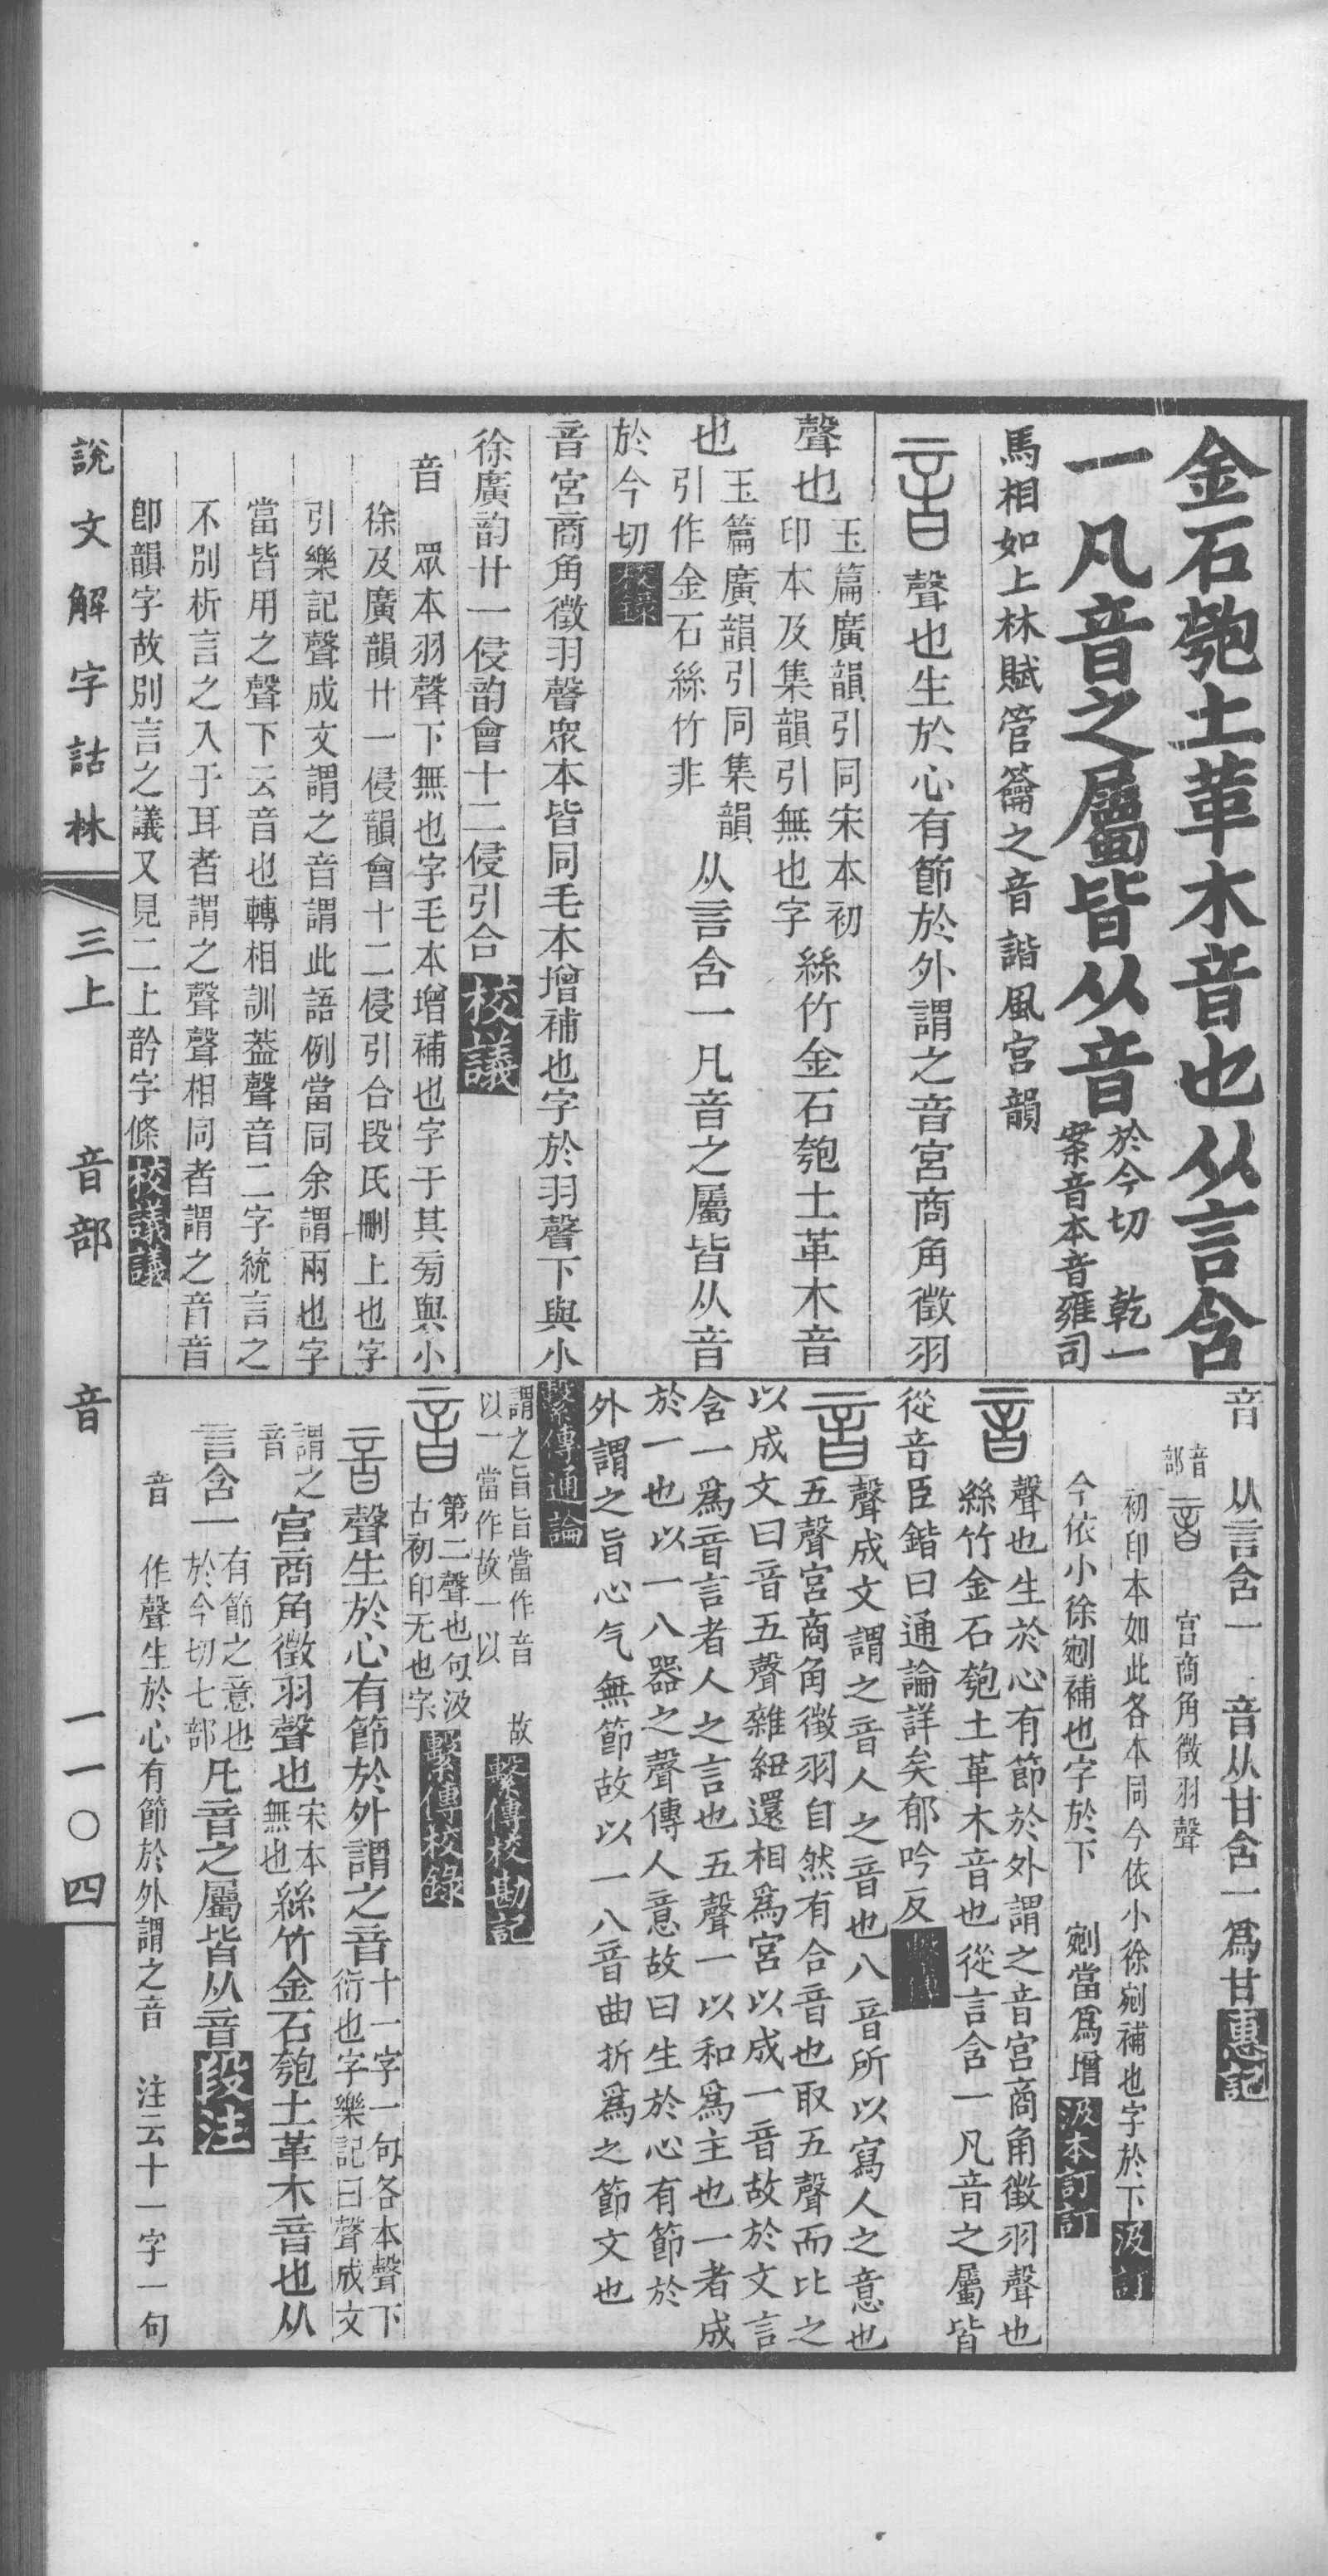 金石匏土革木音也从言含
一凡音之屬皆从音於今切　乾一
案音本音雍司
馬相如上林賦管籥之音諧風宮韻
音聲也生於心有節於外謂之音宮商角徵羽
聲也玉篇廣韻引同宋本初
印本及集韻引無也字絲竹金石匏土革木音
也玉篇廣韻引同集韻
引作金石絲竹非从言含一凡音之屬皆从音
於今切校錄
音宮商角徵羽聲眾本皆同毛本增補也字於羽聲下與小
徐廣韵廿一侵韵會十二侵引合校議
音　眾本羽聲下無也字毛本增補也字于其旁與小
徐及廣韻廿一侵韻會十二侵引合段氏刪上也字
引樂記聲成文謂之音謂此語例當同余謂兩也字
當皆用之聲下云音也轉相訓葢聲音二字統言之
不別析言之入于耳者謂之聲聲相同者謂之音音
卽韻字故別言之議又見二上䪩字條校議議
音　从言含一　音从甘含一爲甘惠記
音部　音　宮商角徵羽聲
初印本如此各本同今依小徐剜補也字於下汲訂
今依小徐剜補也字於下　剜當爲增汲本訂訂
音聲也生於心有節於外謂之音宮商角徵羽聲也
絲竹金石匏土革木音也從言含一凡音之屬皆
從音臣鍇曰通論詳矣郁吟反繫傳
音聲成文謂之音人之音也八音所以寫人之意也
五聲宮商角徵羽自然有合音也取五聲而比之
以成文曰音五聲雜紐還相爲宮以成一音故於文言
含一爲音言者人之言也五聲一以和爲主也一者成
於一也以一八器之聲傳人意故曰生於心有節於
外謂之旨心气無節故以一八音曲折爲之節文也
繫傳通論
謂之旨旨當作音　故
以一當作故一以繫傳校勘記
音第二聲也句汲
古初印无也字繫傳校錄
音聲生於心有節於外謂之音十一字一句各本聲下
衍也字樂記曰聲成文
謂之
音宮商角徵羽聲也宋本
無也絲竹金石匏土革木音也从
言含一有節之意也
於今切七部凡音之屬皆从音段注
音　作聲生於心有節於外謂之音　注云十一字一句
說文解字詁林　三上　音部　音　一一〇四